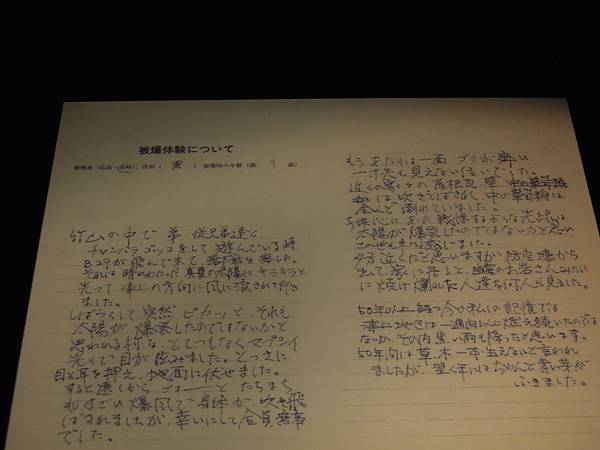 被爆体験について
被爆地（広島・長崎）、性別（ 男 ）被爆時の年齢（満 9 歳）
竹山の中で弟、従兄弟達と
チャンバラゴッコをして遊んでいる時
B29が飛んで来て落下傘を落した。
それは晴れわたった真夏の太陽にキラキラと
光って浦上の方向に風に流されて行き
ました。
しばらくして突然ピカッと、それも
太陽が爆発したのではないかと
思われる様な、とてつもなくマブシイ
光りで目が眩みました。とっさに
目と耳を押え、地面に伏せました。
すると遠くからゴォーーとたちまち
ものすごい爆風で身体が吹き飛
ばされましたが、幸いにして全員無事
でした。
もうあたりは一面ゴミが舞い
一寸先も見えない位いでした。
近くの家々の屋根瓦、壁
は吹きとばされ、中の
全んど倒れていました。
子供心に
太陽が爆発したのではないかと思い
この世も
思いますが防空壕から
出て家に居ると、のお岩さんみたい
に火焼け爛れた人達を何人も見ました。
50年以上経つ今の私の記憶では
浦上地区は一週間以上燃え続いたのでは
ないか、その内黒い雨も降ったと思います。
50年間は草木一本生えないと言われ
ましたが、翌く年にはちゃんと青い芽が
ふきました。